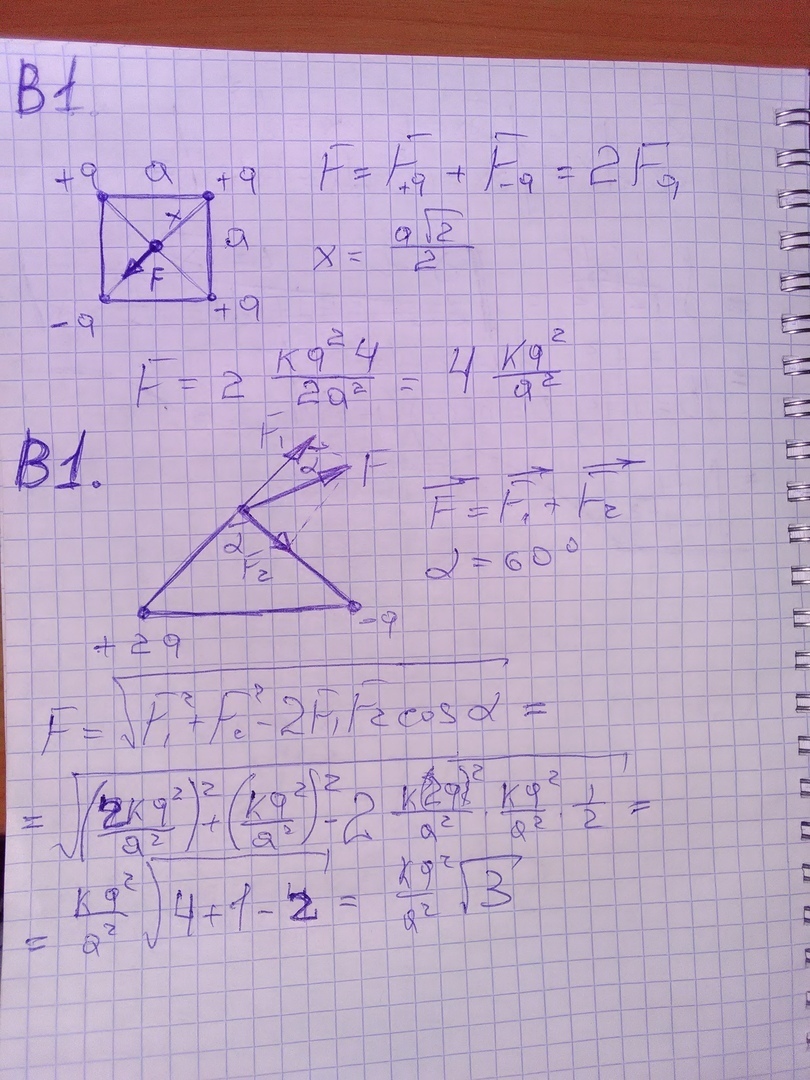 B1
+q a +q
F = F+q + F-q = 2Fq
x a
x = a√2/2
F
-q +q
F = 2 kq²4/2a² = 4 kq²/a²
B1.
F₁ α F
F = F₁ + F₂
α F₂
α = 60°
+2q -q
F = √(F₁² + F₂² - 2F₁F₂ cos α) =
= √((2kq²/a²)² + (kq²/a²)² - 2 k2q²/a² · kq²/a² · 1/2) =
= kq²/a² √(4+1-2) = kq²/a² √3